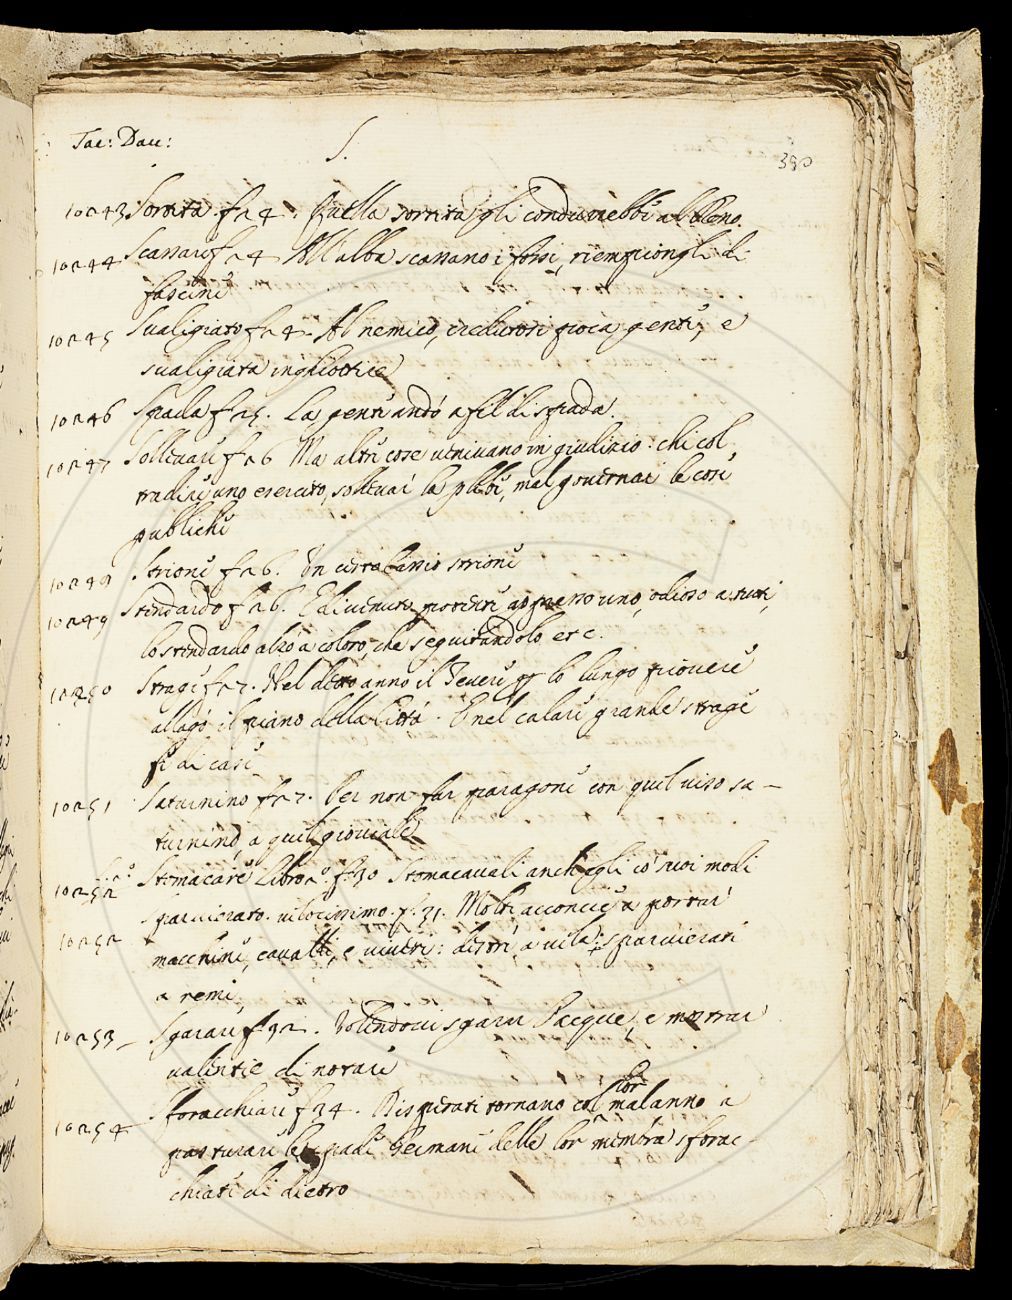 Tac: Dav:
S.
380
10243 Sortita f 24. Quella sortita gli condurrebbe al Reno.
10244 Scassare f 24 All'alba scassano i fossi, riempiongli di
fascine
10245 Svaligiato f 24. Al nemico, poca gente, e
svaligiata inghiottire
10246 Spada f 25. La gente andò a fill di spada.
10247 Sollevare f 26 Ma altre cose venivano in giudizio: chi col
tradire uno esercito, sollevar la plebe, mal governar le cose
publiche
10248 Strione f 26. Un certo strione
10249 Stendardo f 26. E divenuto potente appresso uno, odioso a tutti,
lo stendardo alzò a coloro, che seguitandolo etc.
10250 Strage f 27. Nel detto anno il Tevere p lo lungo piovere
allagò il piano della Città. E nel calare grande strage
fe di case
10251 Saturnino f 27. Per non far paragone con quel viso sa-
turnino, a quel gioviale
1025 Stomacare Libro 2.° f. 30 Stomacavali anch'egli co' suoi modi
10252 Sparvierato. velocissimo. f. 31. Molti acconcie a portar
macchine, cavalli, e viveri: destri a vela: sparvierati
a remi,
10253 Sgarare f 32. Volendovi sgarar l'acque, e mostrar
valentie di notare
10254 Sforacchiare f 34. Disperati tornano col lor malanno a
pasturar le spade Germane delle lor membra sforac-
chiate di dietro